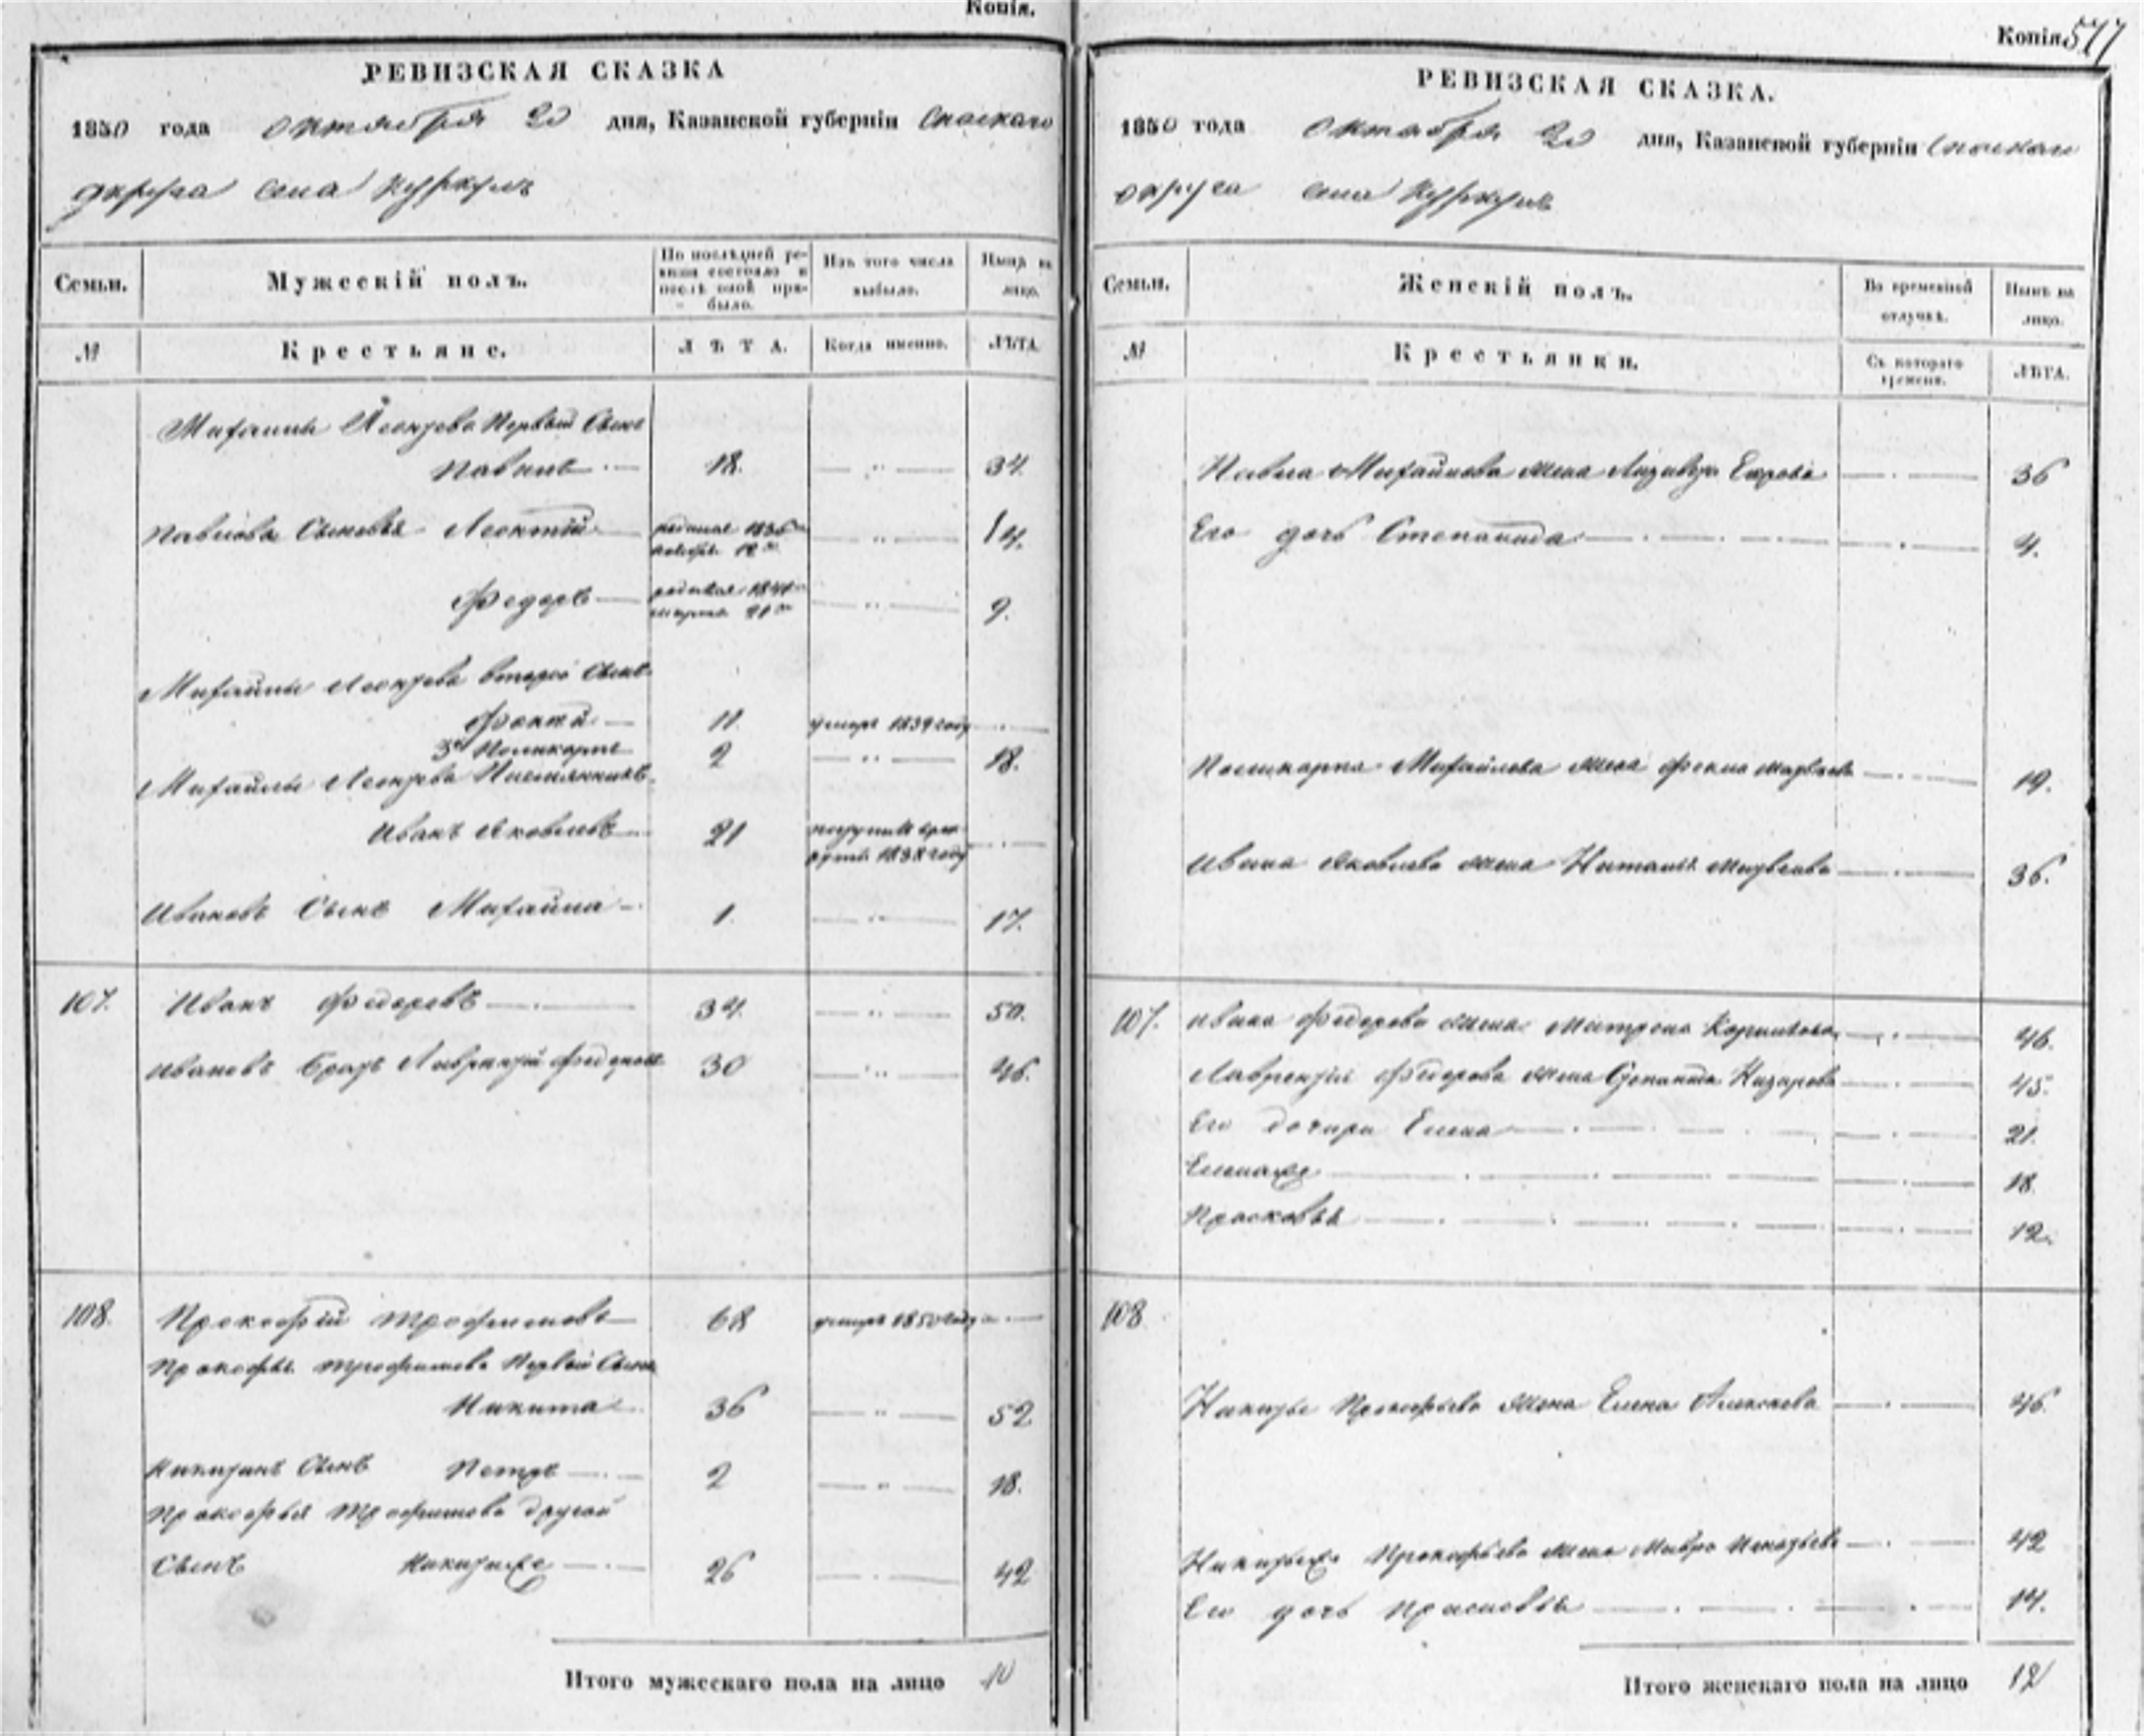 Копія.
РЕВИЗСКАЯ СКАЗКА
1850 года октября 20 дня, Казанской губерніи Спаскаго
округа села Куркуль
Семьи. Мужескій полъ. По послѣдней ревизіи состояло и послѣ оной прибыло. Изъ того числа выбыло. Нынѣ на лицо.
№ Крестьяне. ЛѢТА. Когда именно. ЛѢТА.
Михайлы Леонтьева Первый Сынъ
Павелъ 18. 34.
Павловы Сыновья Леонтій родился 1836 ноября 12 14.
Федоръ родился 1841 марта 21 9.
Михайлы Леонтьева второй Сынъ
Фоктй 11. умеръ 1839 году
3й Поликарпъ 2 18.
Михайлы Леонтьева Племянникъ
Иванъ Яковлевъ 21 1838 году
Ивановъ Сынъ Михайла 1. 17.
107. Иванъ Федоровъ 34. 50.
Ивановъ братъ Лаврентій Федоровъ 30 46.
108. Прокофій Трофимовъ 68 умеръ 1850 году
Прокофья Трофимова Первый Сынъ
Никита 36 52
Никитинъ Сынъ Петръ 2 18.
Прокофья Трофимова другой
Сынъ Никитаже 26 42
Итого мужескаго пола на лицо 10
Копія. 577
РЕВИЗСКАЯ СКАЗКА.
1850 года Октября 20 дня, Казанской губерніи Спаскаго
округа села Куркуль
Семьи. Женскій полъ. Во временной отлучкѣ. Нынѣ на лицо.
№ Крестьянки. Съ котораго времени. ЛѢТА.
Павла Михайлова жена Лизавета Егорова 36
Его дочь Степанида 4.
Поликарпа Михайлова жена Фекла 19.
Ивана Яковлева жена Наталья 36.
107. Ивана Федорова жена Матрена 46.
Лаврентья Федорова жена Степанида Назарова 45.
Его дочери Елена 21.
Еленаже 18
Прасковья 12.
108
Никиты Прокофьева жена Елена Алексеева 46.
Никитыже Прокофьева жена Мавра Игнатьева 42
Его дочь Прасковья 14.
Итого женскаго пола на лицо 12